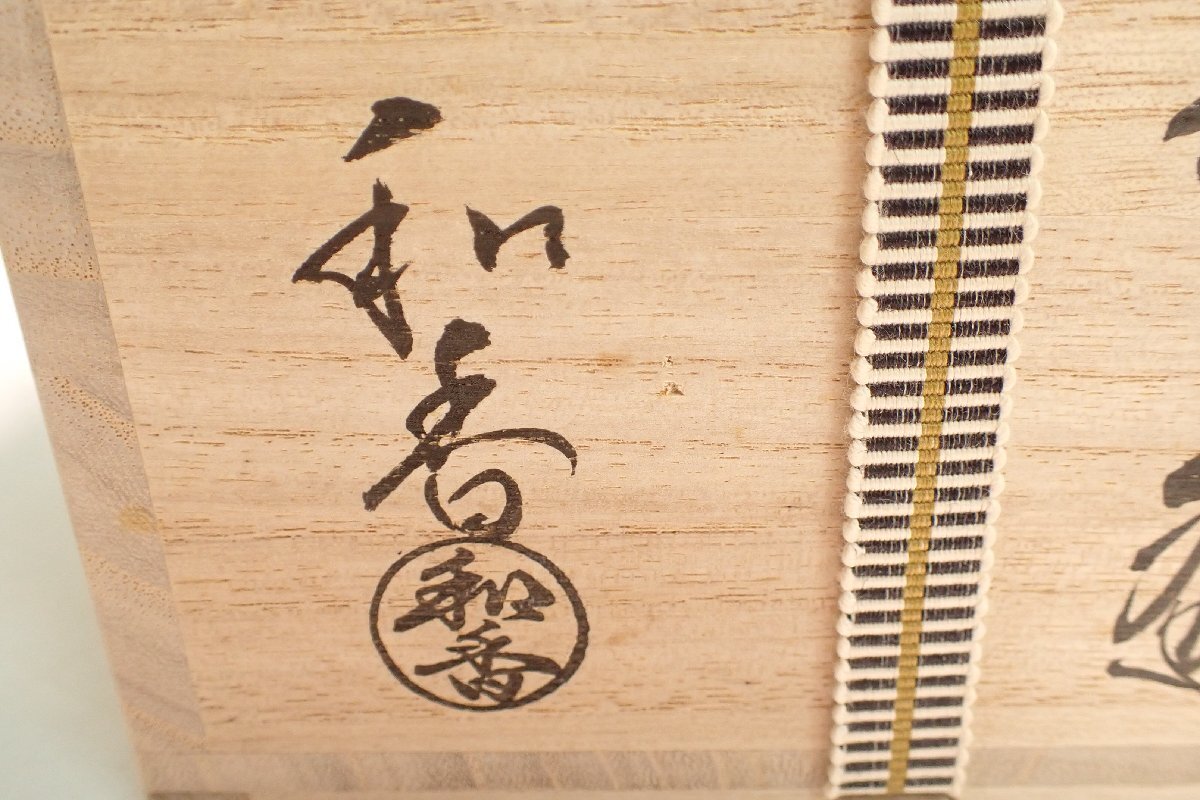 和香
和香